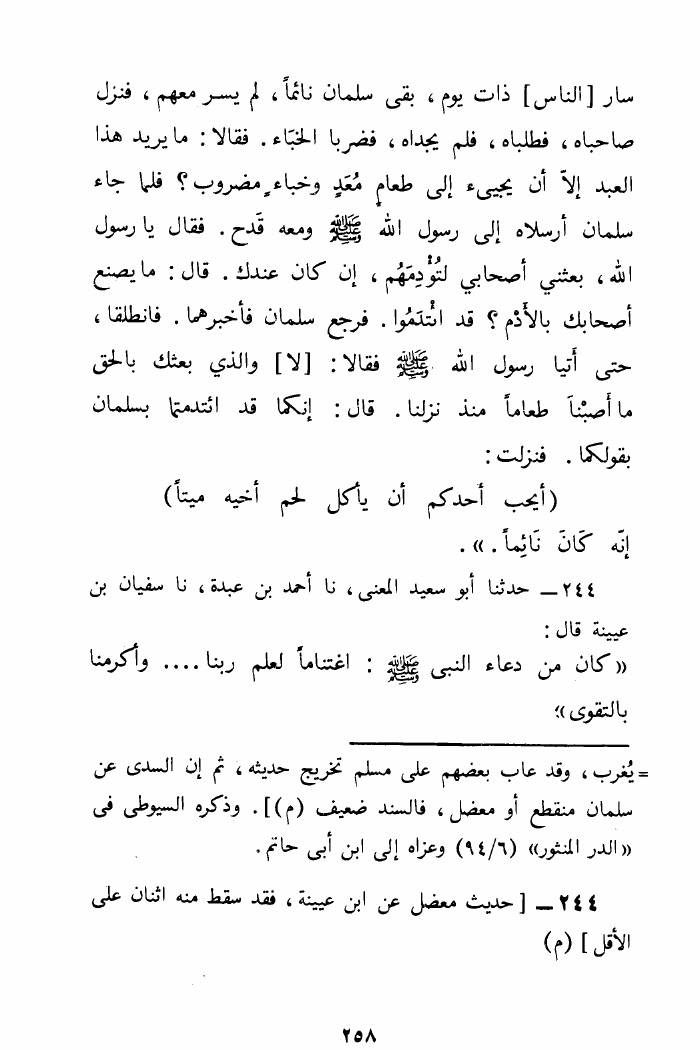 سار [الناس] ذات يوم، بقى سلمان نائماً، لم يسر معهم، فنزل
صاحباه، فطلباه، فلم يجداه، فضربا الخبَاء. فقالا: ما يريد هذا
العبد إلاّ أن يجيىء إلى طعامٍ مُعَدٍ وخباءٍ مضروب؟ فلما جاء
سلمان أرسلاه إلى رسول الله ﷺ ومعه قَدح. فقال يا رسول
الله، بعثني أصحابي لتُؤْدِمَهُم، إن كان عندك. قال: ما يصنع
أصحابك بالأَدْم؟ قد ائْتَدَمُوا. فرجع سلمان فأخبرهما. فانطلقا،
حتى أَتيا رسول الله ﷺ فقالا: [لا] والذي بعثك بالحق
ما أَصبْناَ طعاماً منذ نزلنا. قال: إنكما قد ائتدمتما بسلمان
بقولكما. فنزلت:
(أيحب أحدكم أن يأكل لحم أخيه ميتاً)
إنّه كَانَ نَائِماً.».
٢٤٤ ــ حدثنا أبو سعيد المعنى، نا أحمد بن عبدة، نا سفيان بن
عيينة قال:
«كان من دعاء النبى ﷺ : اغتناماً لعلم ربنا.... وأكرمنا
بالتقوى»؛
= يُغرب، وقد عاب بعضهم على مسلم تخريج حديثه، ثم إن السدى عن
سلمان منقطع أو معضل، فالسند ضعيف (م)]. وذكره السيوطى فى
«الدر المنثور» (٩٤/٦) وعزاه إلى ابن أبى حاتم.
٢٤٤ ــ [حديث معضل عن ابن عيينة، فقد سقط منه اثنان على
الأقل] (م)
٢٥٨